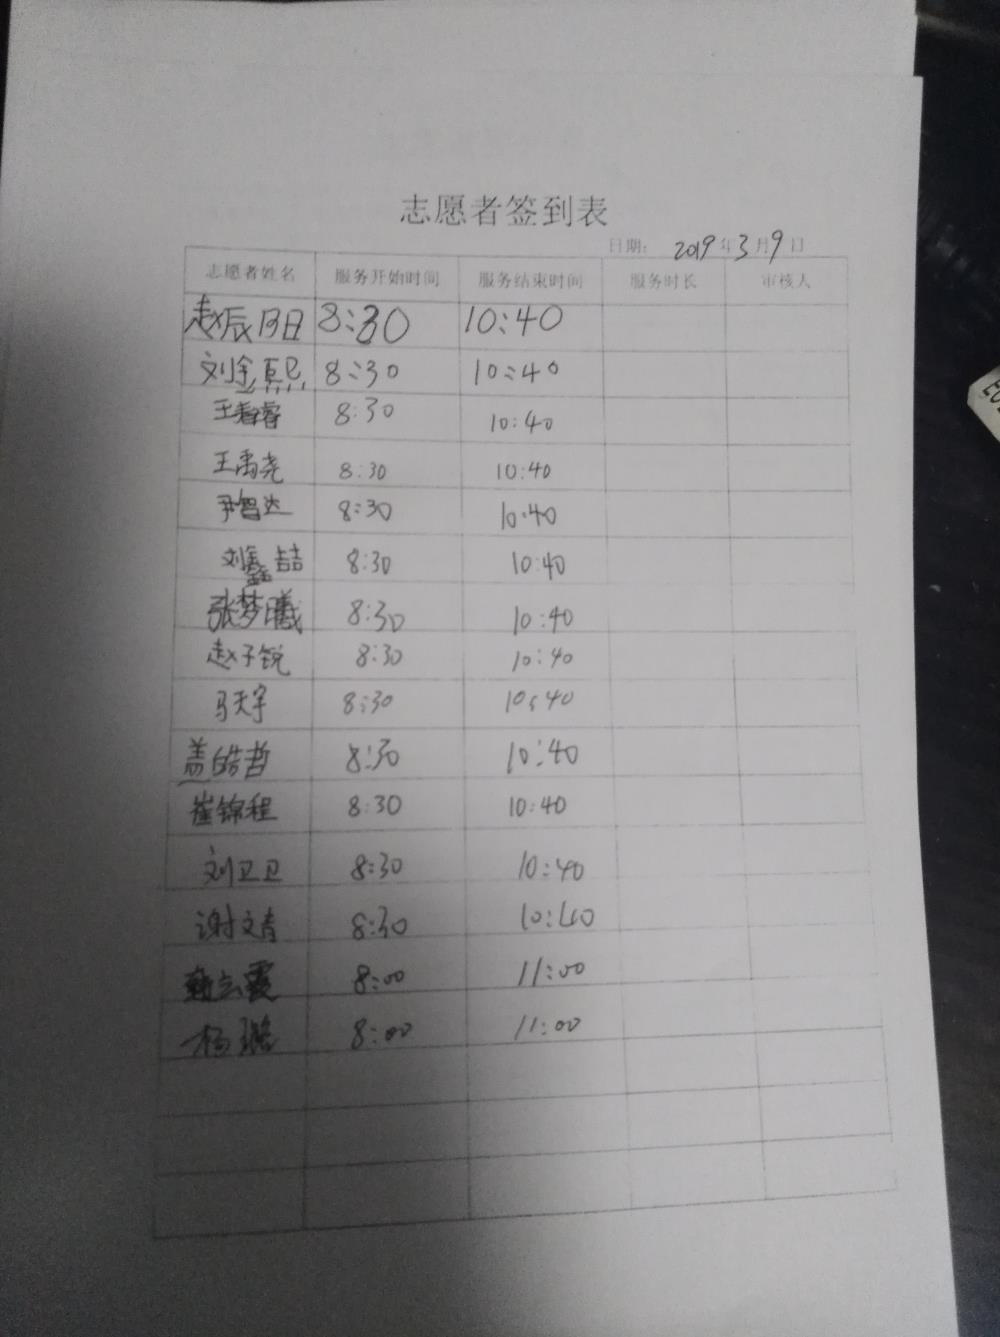 志愿者签到表
日期: 2019年3月9日
志愿者姓名 服务开始时间 服务结束时间 服务时长 审核人
赵辰阳 8:30 10:40
刘金熙 8:30 10:40
王睿 8:30 10:40
王禹尧 8:30 10:40
尹智达 8:30 10:40
刘鑫喆 8:30 10:40
张梦曦 8:30 10:40
赵子锐 8:30 10:40
马天宇 8:30 10:40
盖皓哲 8:30 10:40
崔锦程 8:30 10:40
刘卫卫 8:30 10:40
谢文青 8:30 10:40
云霞 8:00 11:00
杨璐 8:00 11:00